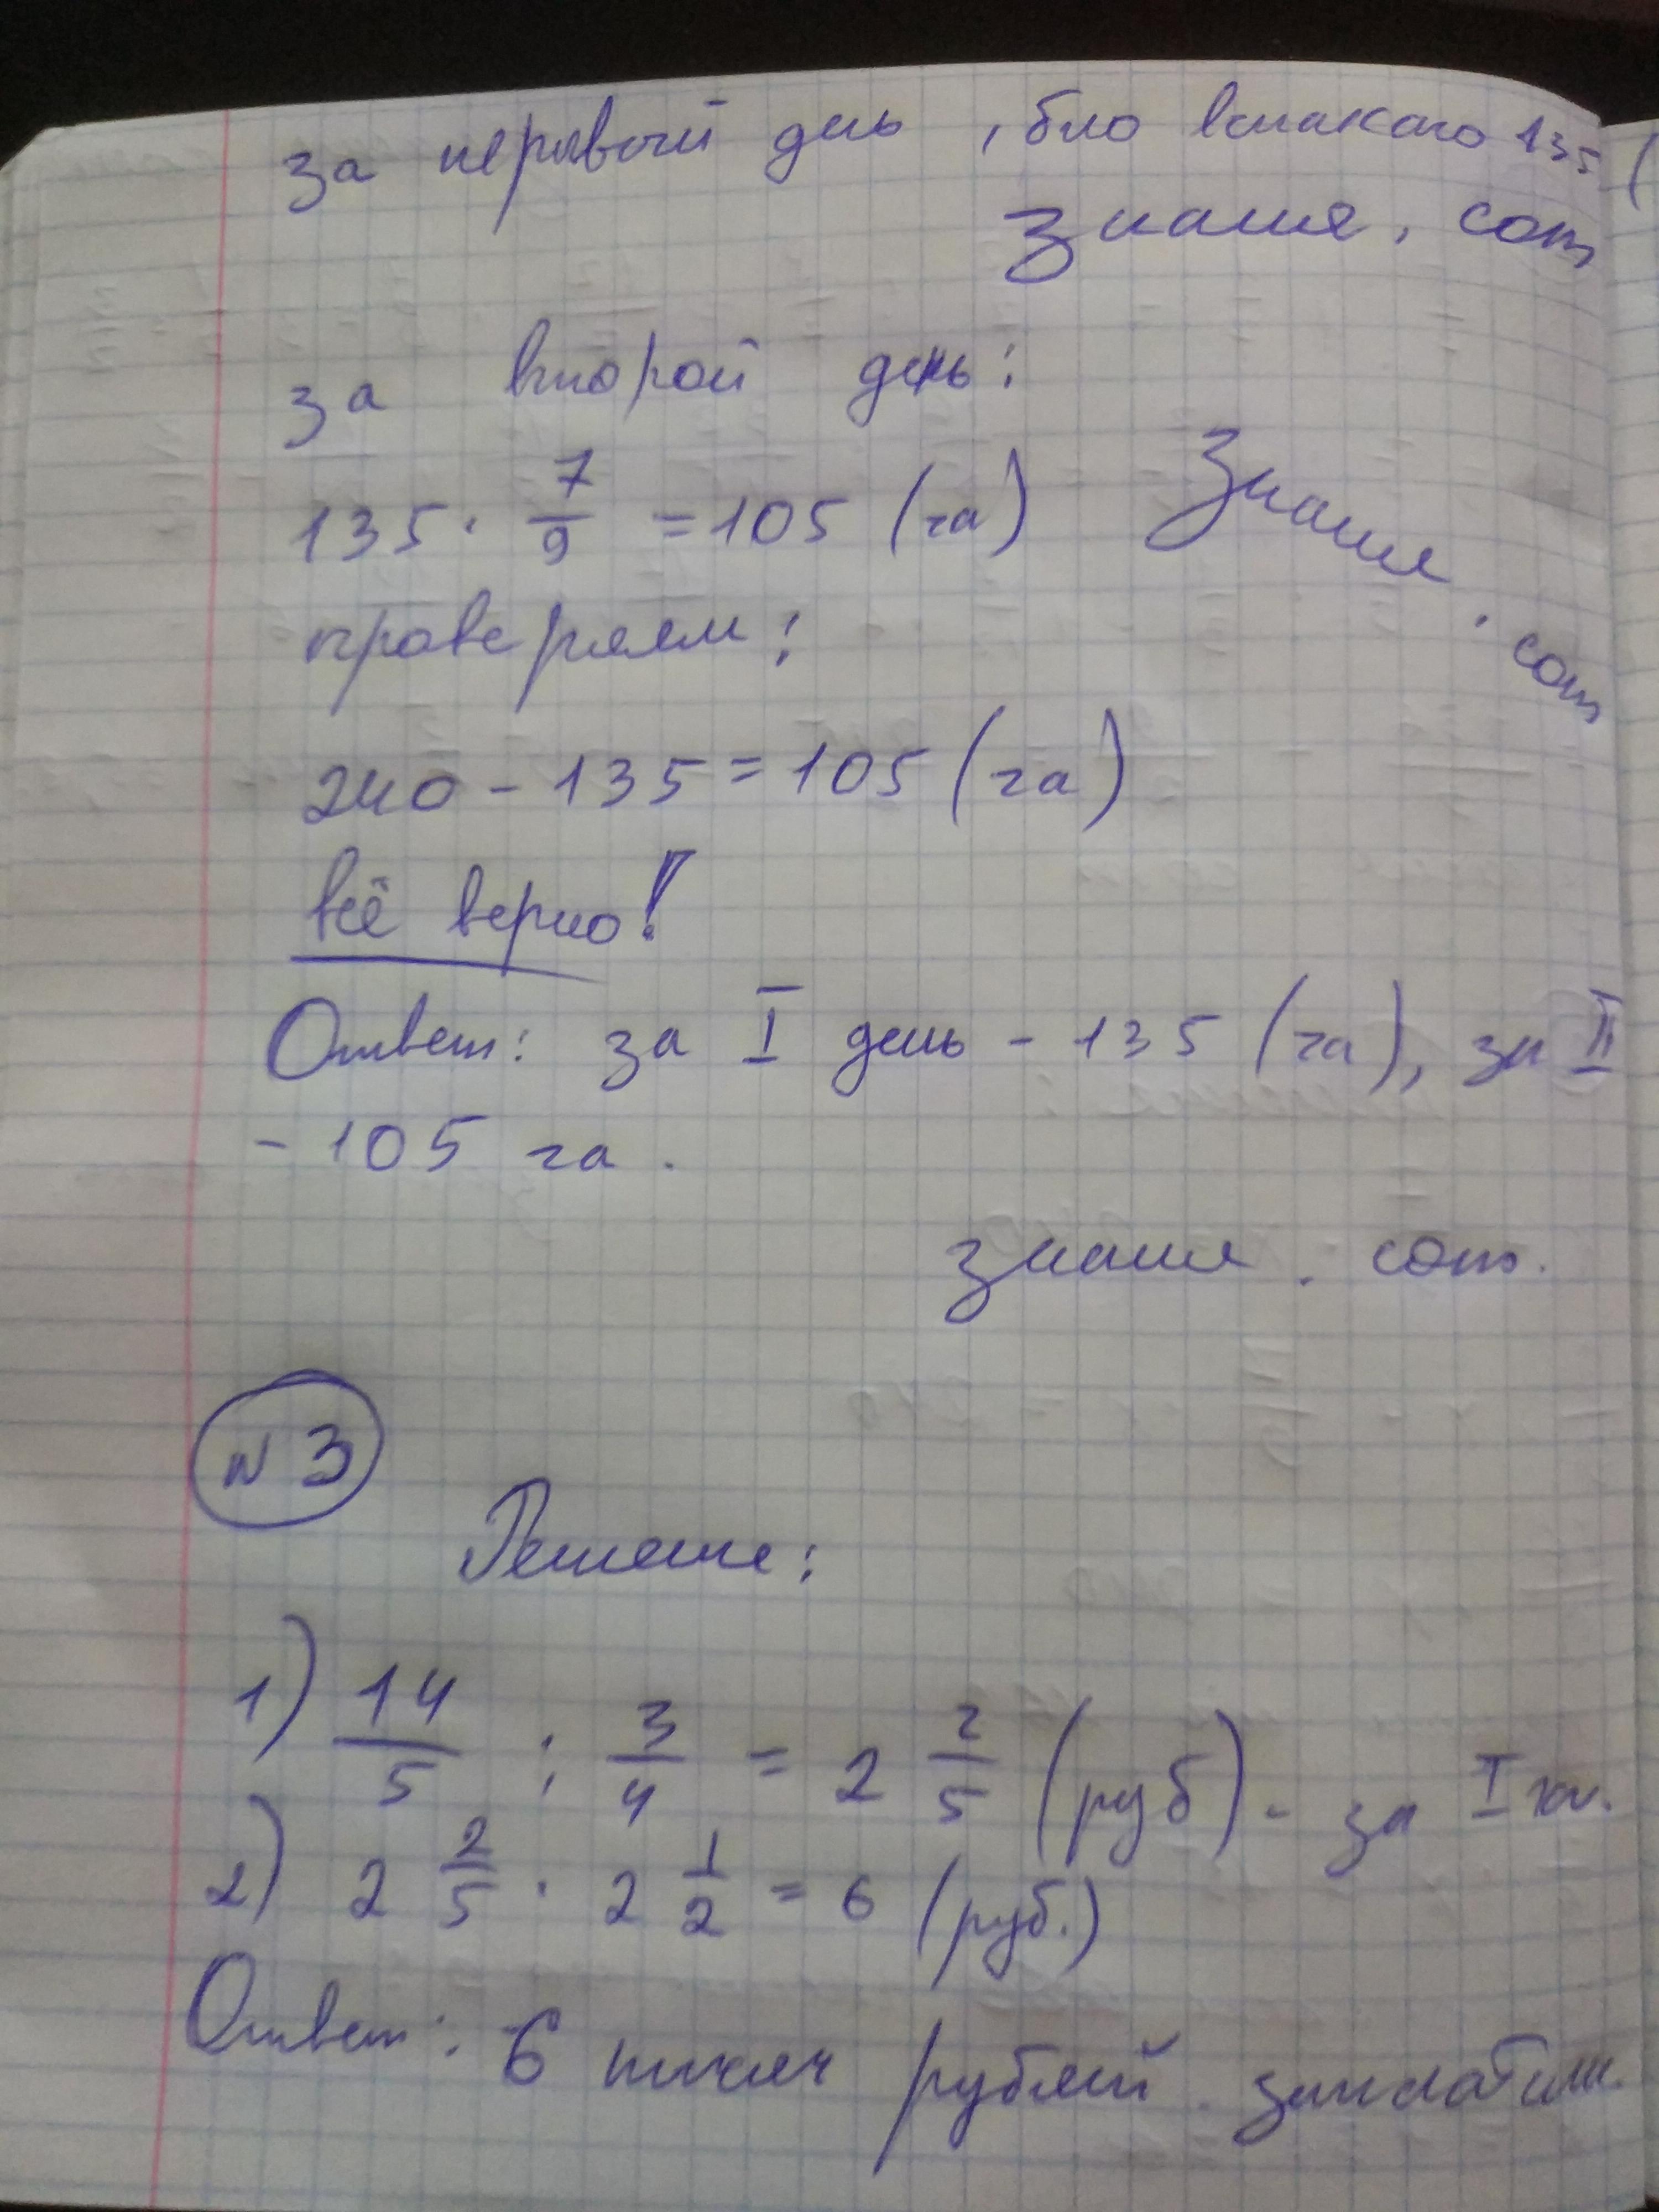 за первый день, было вспахано 135 (
знания.com
за второй день:
135 · 7/9 = 105 (га) знания.com
проверяем:
240 - 135 = 105 (га)
всё верно!
Ответ: за I день - 135 (га), за II
- 105 га.
знания.com.
N 3
Решение:
1) 14/5 : 3/4 = 2 2/5 (руб) - за I кг.
2) 2 2/5 · 2 1/2 = 6 (руб.)
Ответ: 6 тысяч рублей заплатили.